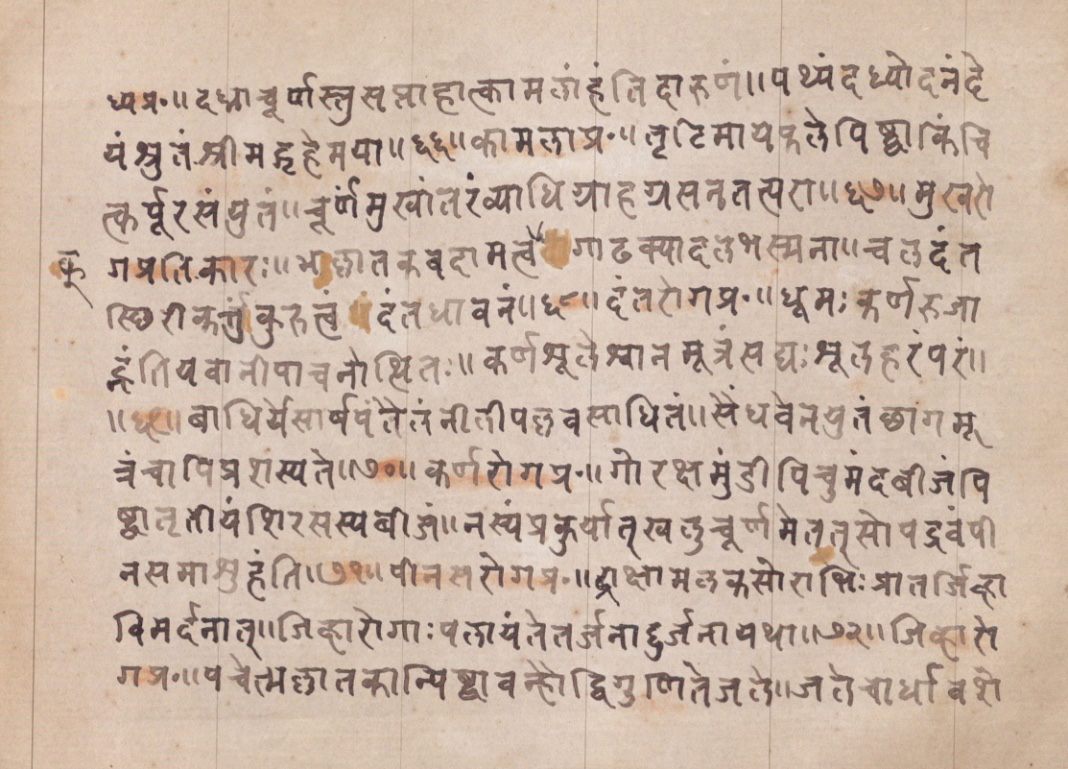 ध्यप्र॰॥ दध्नाचूर्णास्तु सप्ताहात्कामलांहंति दारुणं॥ पथ्यंदध्योदनंदे
यंश्रुतंश्रीमद्गृहेमया॥६६॥ कामलाप्र॰॥ तृटिमायफलेपिष्ट्वाकिंचि
त्कर्पूरसंयुतं॥ चूर्णंमुखांतरंव्याधिग्राहग्रसनतत्परा॥६७॥ मुखरो
गप्रतिकारः॥ भल्लातकबदामत्वै गाढक्यादलभस्मना॥ चलदंत
स्छिरीकर्तुंकुरुत्वं दंतधावनं॥६८॥ दंतरोगप्र॰॥ धूमःकर्णरुजा
हंतियवानीपाचनोत्थितः॥ कर्णशूलेश्वानमूत्रंसद्यःशूलहरंपरं॥
॥६९॥ बाधिर्येसार्षपंतैलंनीलीपल्लवसाधितं॥ सैंधवेनयुतंछागमू
त्रंचापिप्रशस्यते॥७०॥ कर्णरोगप्र॰॥ गोरक्षमुंडीपिचुमंदबीजंपि
ष्ट्वातृतीयंशिरसस्यबीजं॥ नस्यंप्रकुर्यात्खलुचूर्णमेतत्सोपद्रवंपी
नसमाशुहंति॥७१॥ पीनसरोगप्र॰॥ द्राक्षामलकसोराभिःप्रातर्जिव्हा
विमर्दनात्॥ जिव्हारोगाःपलायंतेतर्जनाद्दुर्जनायथा॥७२॥ जिव्हारो
गप्र॰॥ पचेत्मल्लातकान्पिष्ट्वावन्हौद्विगुणितेजले॥ जलेचार्धावशे